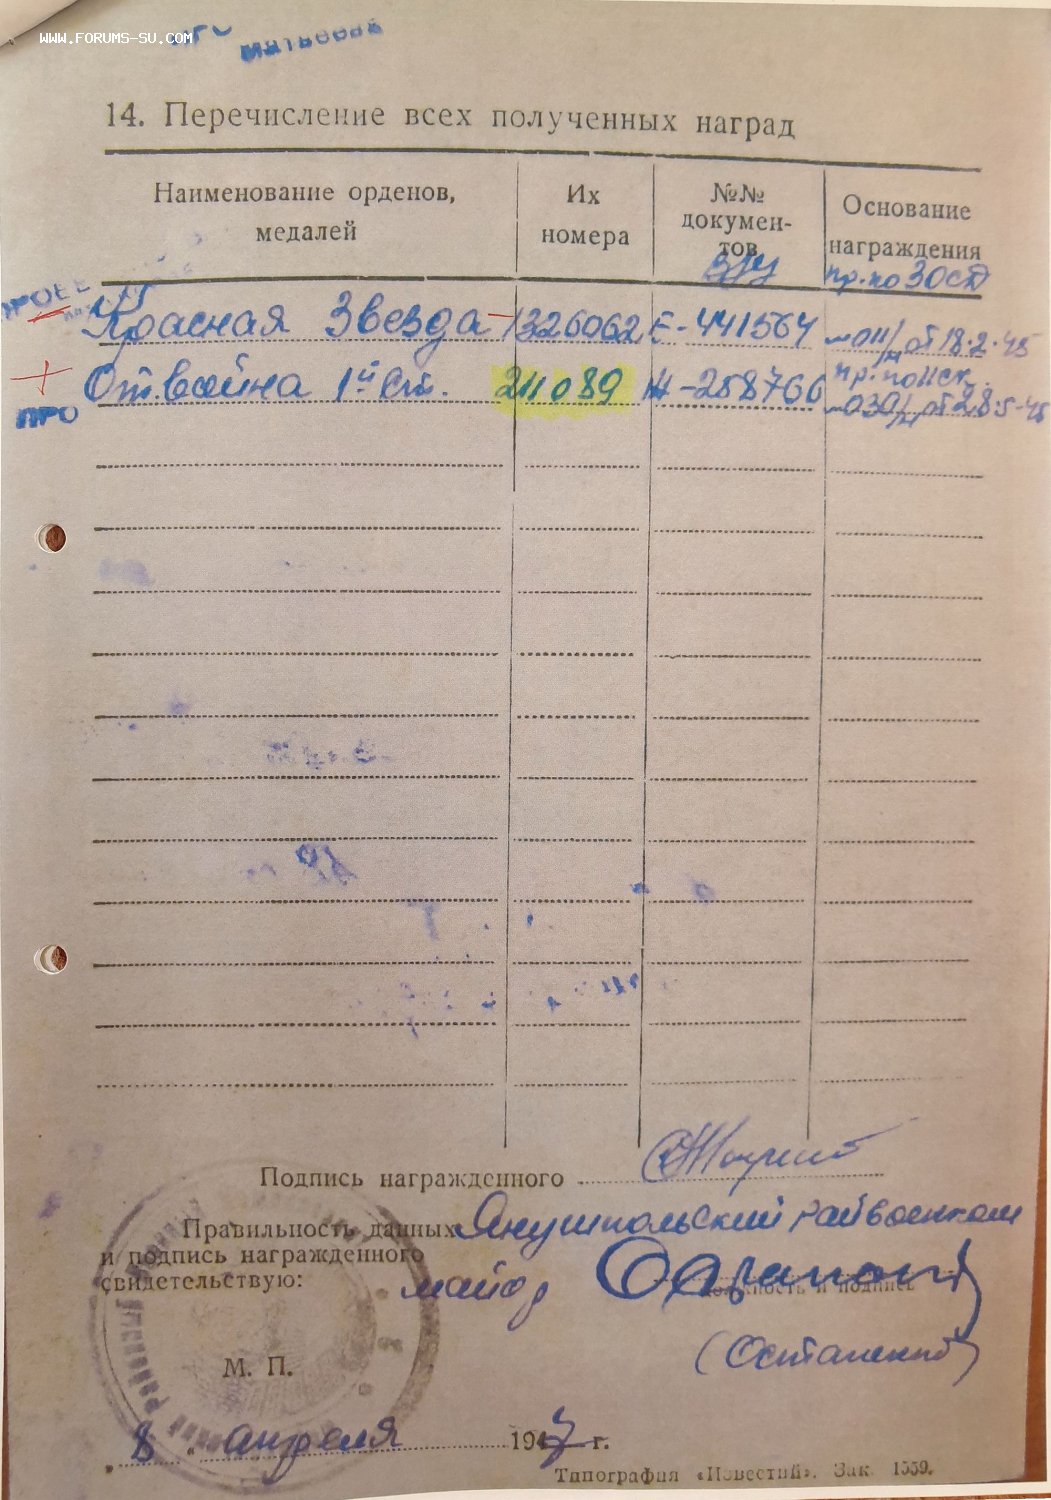 WWW.FORUMS-SU.COM
14. Перечисление всех полученных наград
Наименование орденов, медалей
Их номера
№№ докумен-тов
Основание награждения
Красная Звезда - 1326062 Е-441564 пр. по 30СД №011/н от 18.2.45
От. война 1й ст. 211089 Н-258766 пр. по 11СК №030/н от 28.5.45
ПРО
Подпись награжденного
Правильность данных Янушпольский райвоенком
и подпись награжденного
свидетельствую: майор
должность и подпись
М. П.
„8" апреля 1947 г.
Типография «Известий». Зак. 1559.